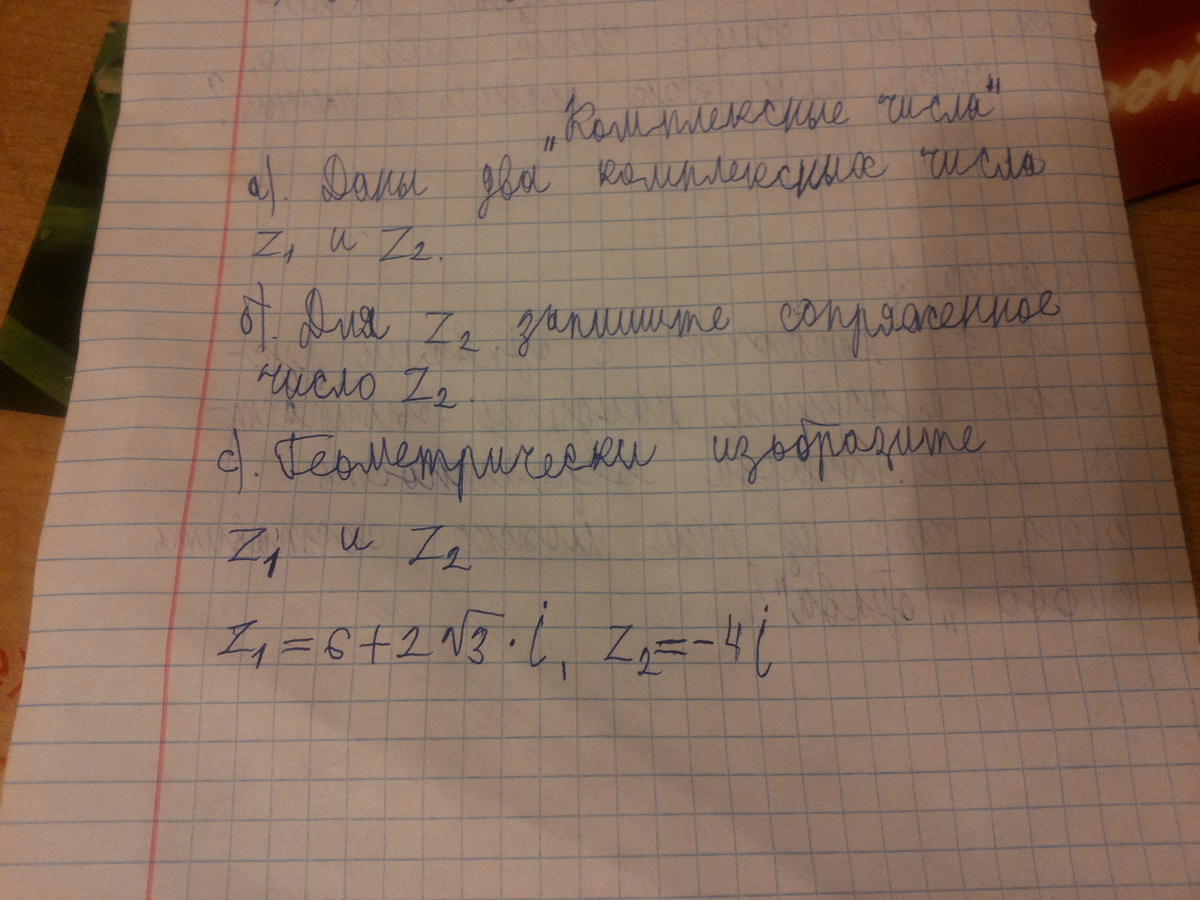 „Комплексные числа"
а). Даны два комплексных числа
Z₁ и Z₂.
б). Для Z₂ запишите сопряженное
число Z₂.
с). Геометрически изобразите
Z₁ и Z₂
Z₁ = 6 + 2√3 · i, Z₂ = -4i